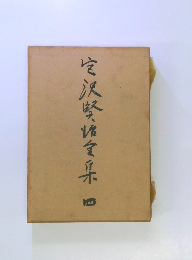 宮沢賢治全集
四